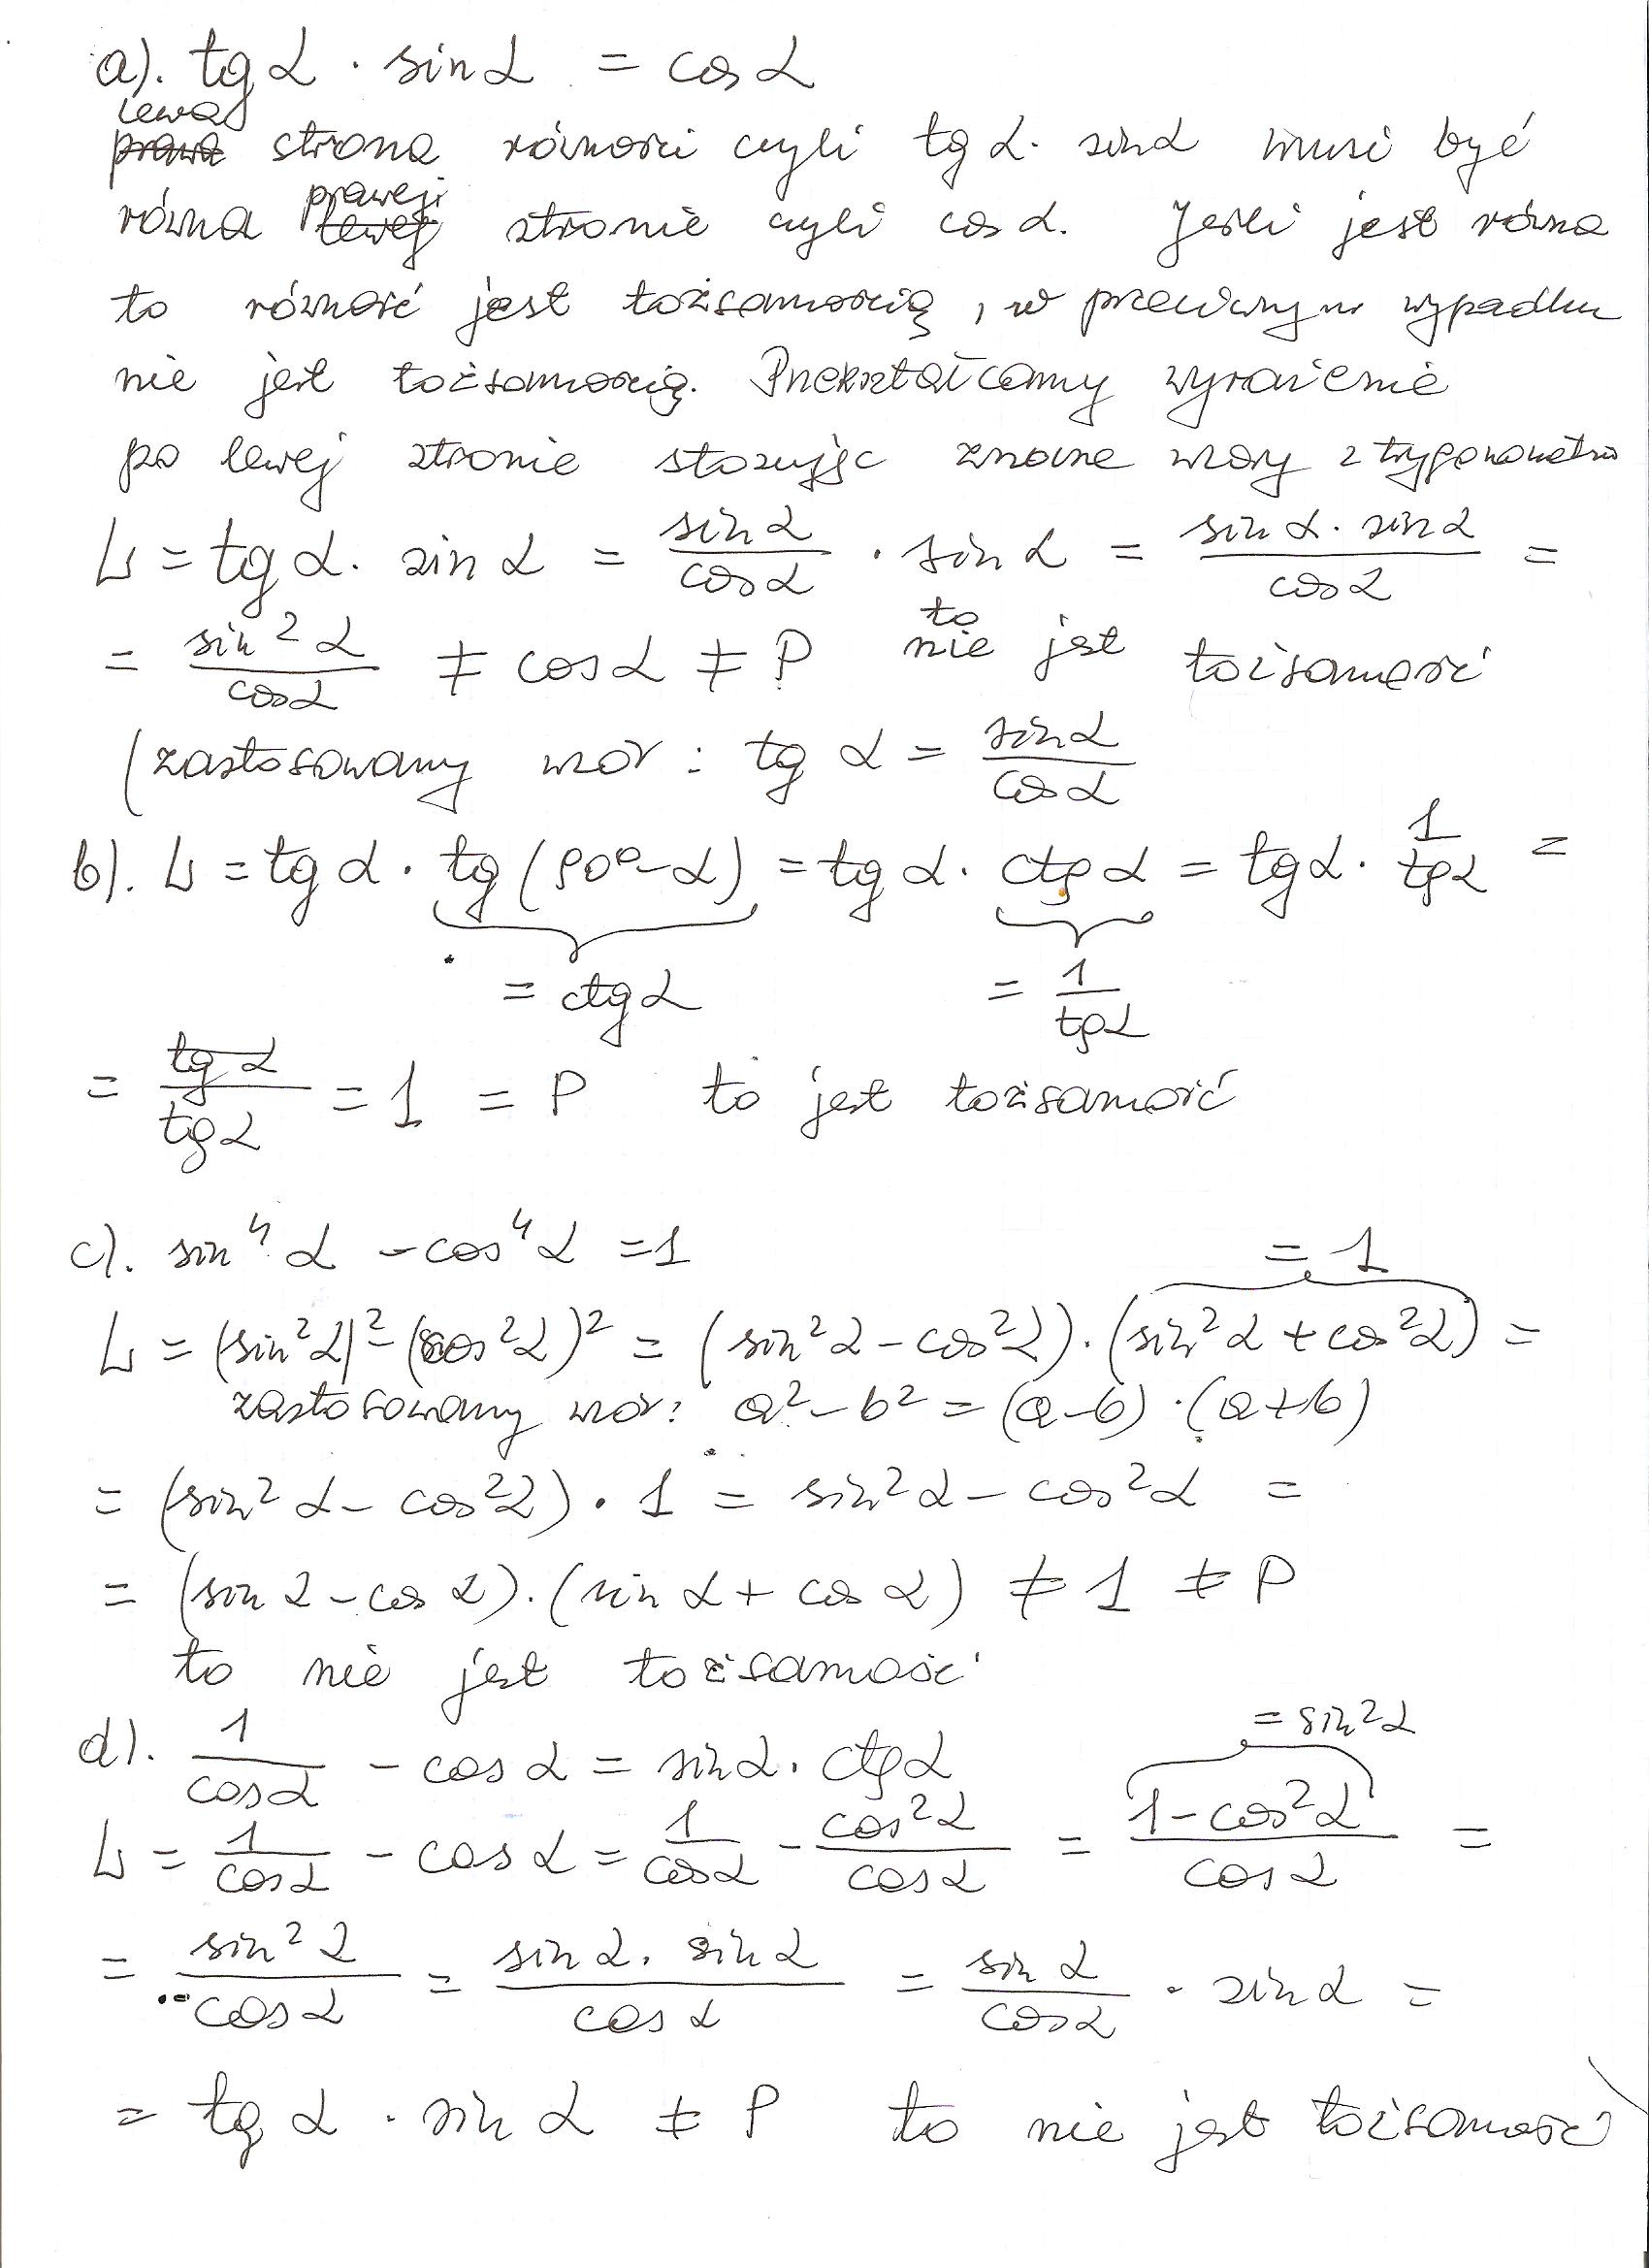 a). tg α · sin α = cos α
lewa
prawa strona równości czyli tg α · sin α musi być
prawej
równa lewej stronie czyli cos α. Jeśli jest równa
to równość jest tożsamością, w przeciwnym wypadku
nie jest tożsamością. Przekształcamy wyrażenie
po lewej stronie stosując znane wzory z trygonometrii
L = tg α · sin α = sin α / cos α · sin α = sin α · sin α / cos α =
= sin² α / cos α ≠ cos α ≠ P to nie jest tożsamość
(zastosowany wzór : tg α = sin α / cos α
b). L = tg α · tg (90° - α) = tg α · ctg α = tg α · 1 / tg α =
= ctg α = 1 / tg α
= tg α / tg α = 1 = P to jest tożsamość
c). sin⁴ α - cos⁴ α = 1
= 1
L = (sin² α)² - (cos² α)² = (sin² α - cos² α) · (sin² α + cos² α) =
zastosowany wzór: a² - b² = (a-b) · (a+b)
= (sin² α - cos² α) · 1 = sin² α - cos² α =
= (sin α - cos α) · (sin α + cos α) ≠ 1 ≠ P
to nie jest tożsamość
d). 1 / cos α - cos α = sin α · ctg α
= sin² α
L = 1 / cos α - cos α = 1 / cos α - cos² α / cos α = 1 - cos² α / cos α =
= sin² α / cos α = sin α · sin α / cos α = sin α / cos α · sin α =
= tg α · sin α ≠ P to nie jest tożsamość